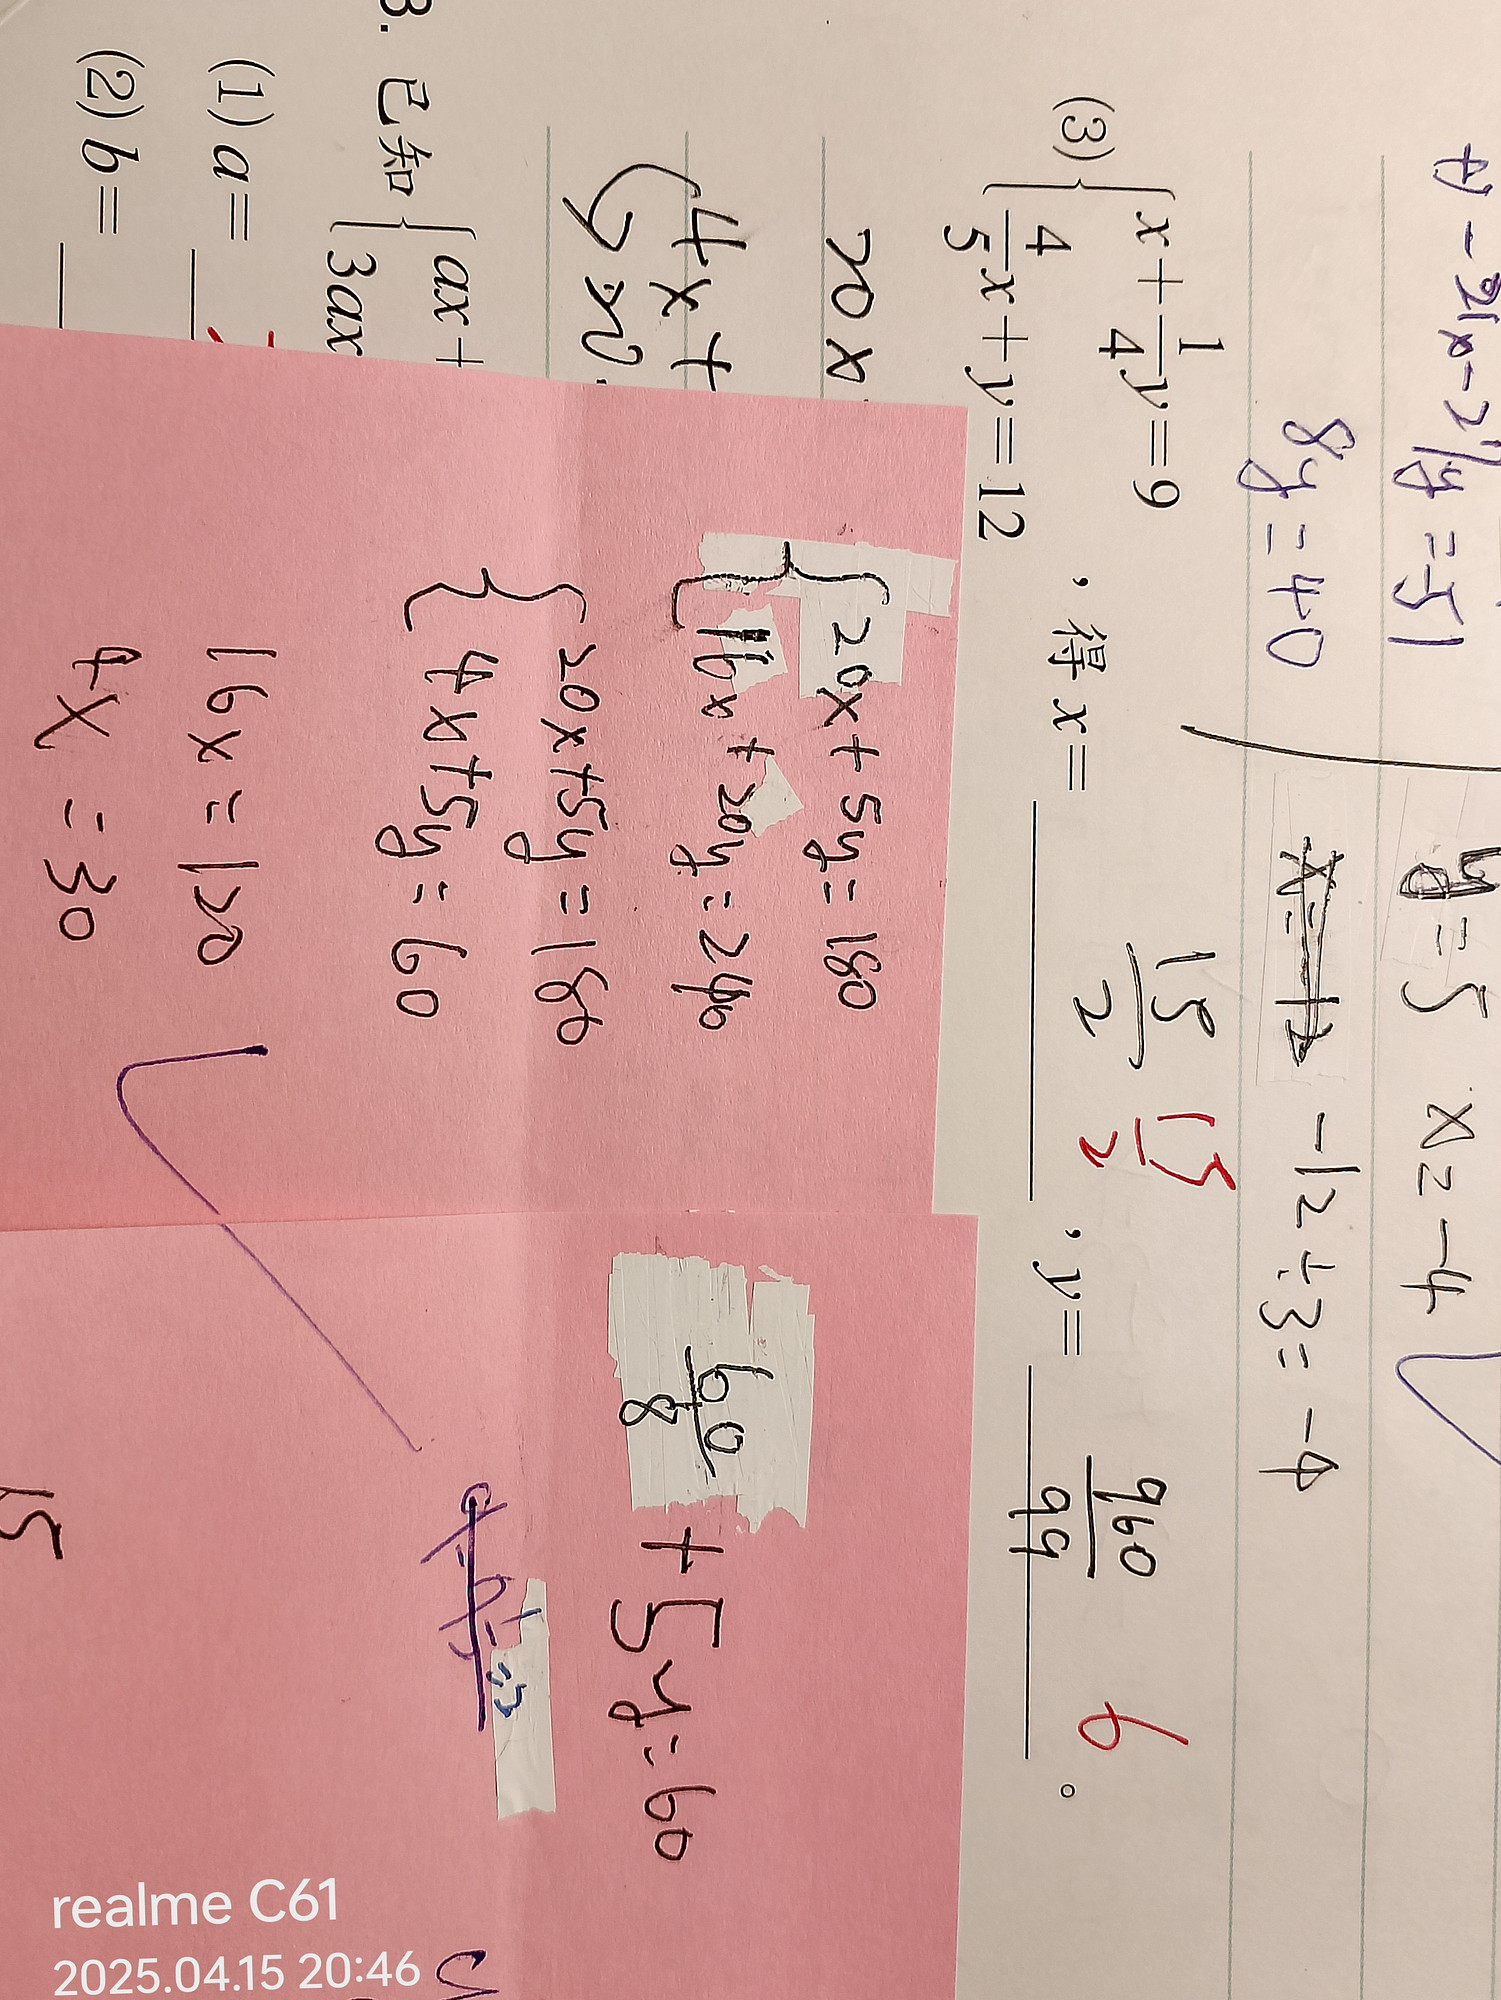 8y = 40
y = 5 x = -4
-12 ÷ 3 = -4
(3) { x + 1/4 y = 9
4/5 x + y = 12 ,得 x = 15/2 15/2 , y = 960/99 6 。
20x
4x +
{ 20x + 5y = 180
16x + 20y = 240
{ 20x + 5y = 180
4x + 5y = 60
16x = 120
4x = 30
60/8 + 5y = 60
15
3. 已知 { ax +
3ax
(1) a =
(2) b =
realme C61
2025.04.15 20:46